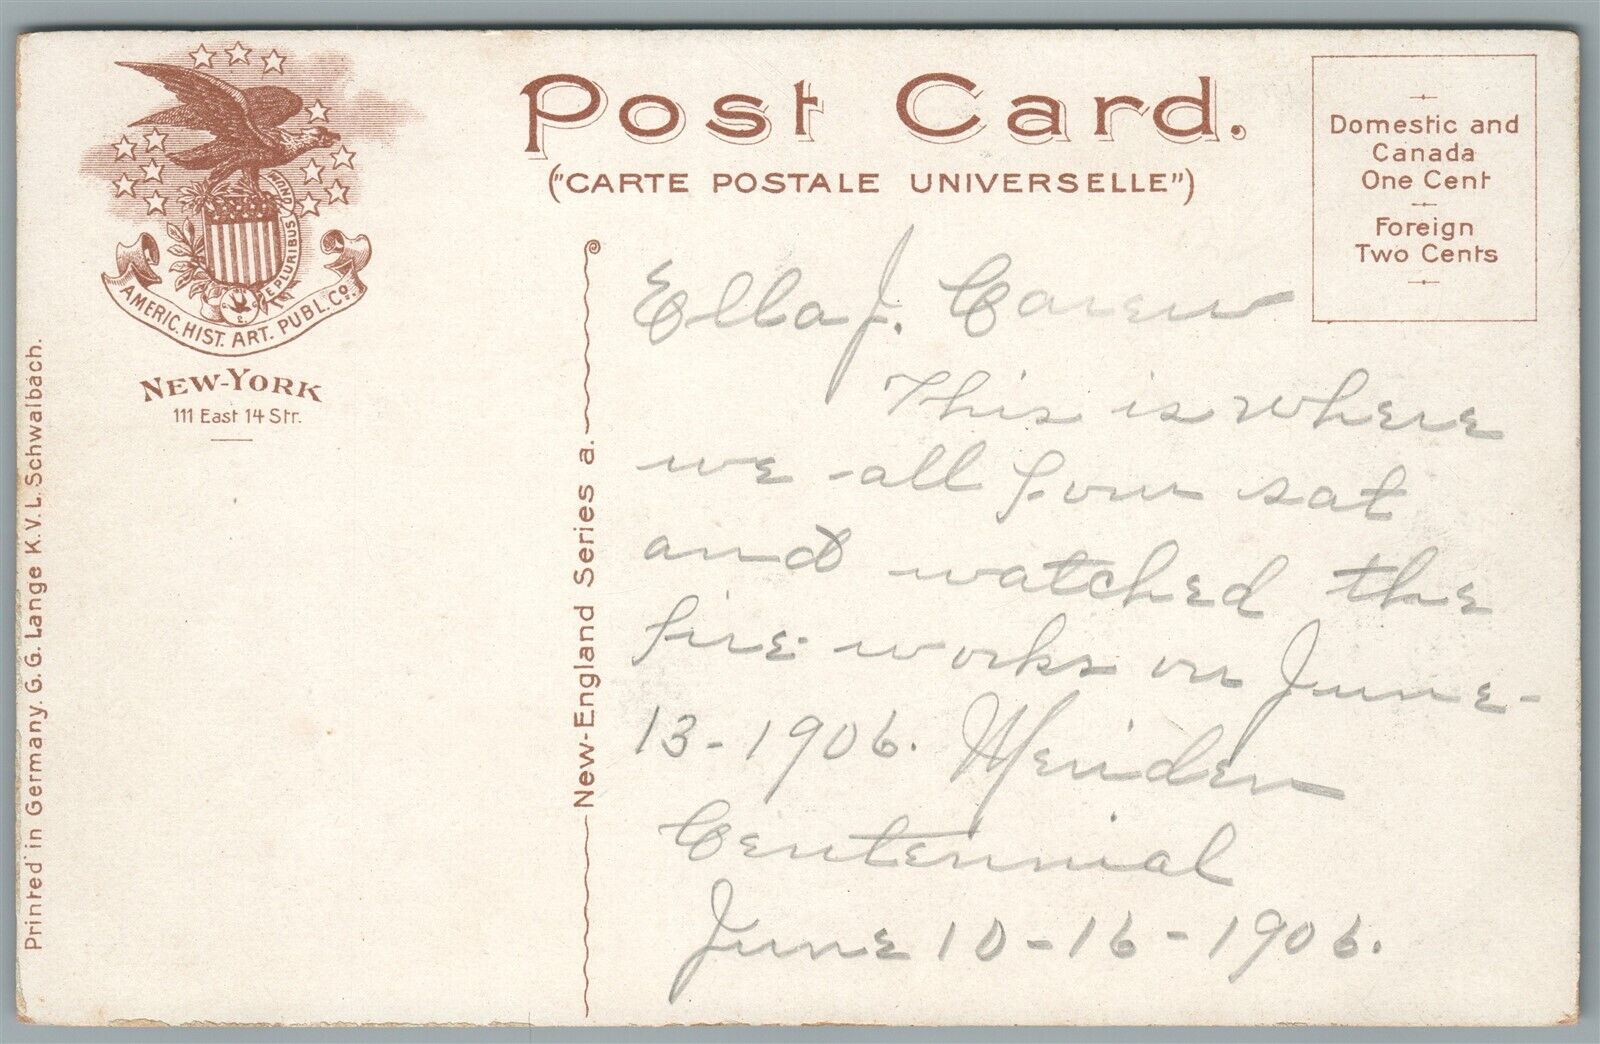 Post Card.
("CARTE POSTALE UNIVERSELLE")
Domestic and
Canada
One Cent
Foreign
Two Cents
E PLURIBUS UNUM
AMERIC. HIST. ART. PUBL. Co.
NEW-YORK
111 East 14 Str.
Printed in Germany. G. G. Lange K. v. L. Schwalbach.
New-England Series a.
Ella J. Carew
This is where
we all four sat
and watched the
fire works on June-
13-1906. Meriden
Centennial
June 10-16-1906.